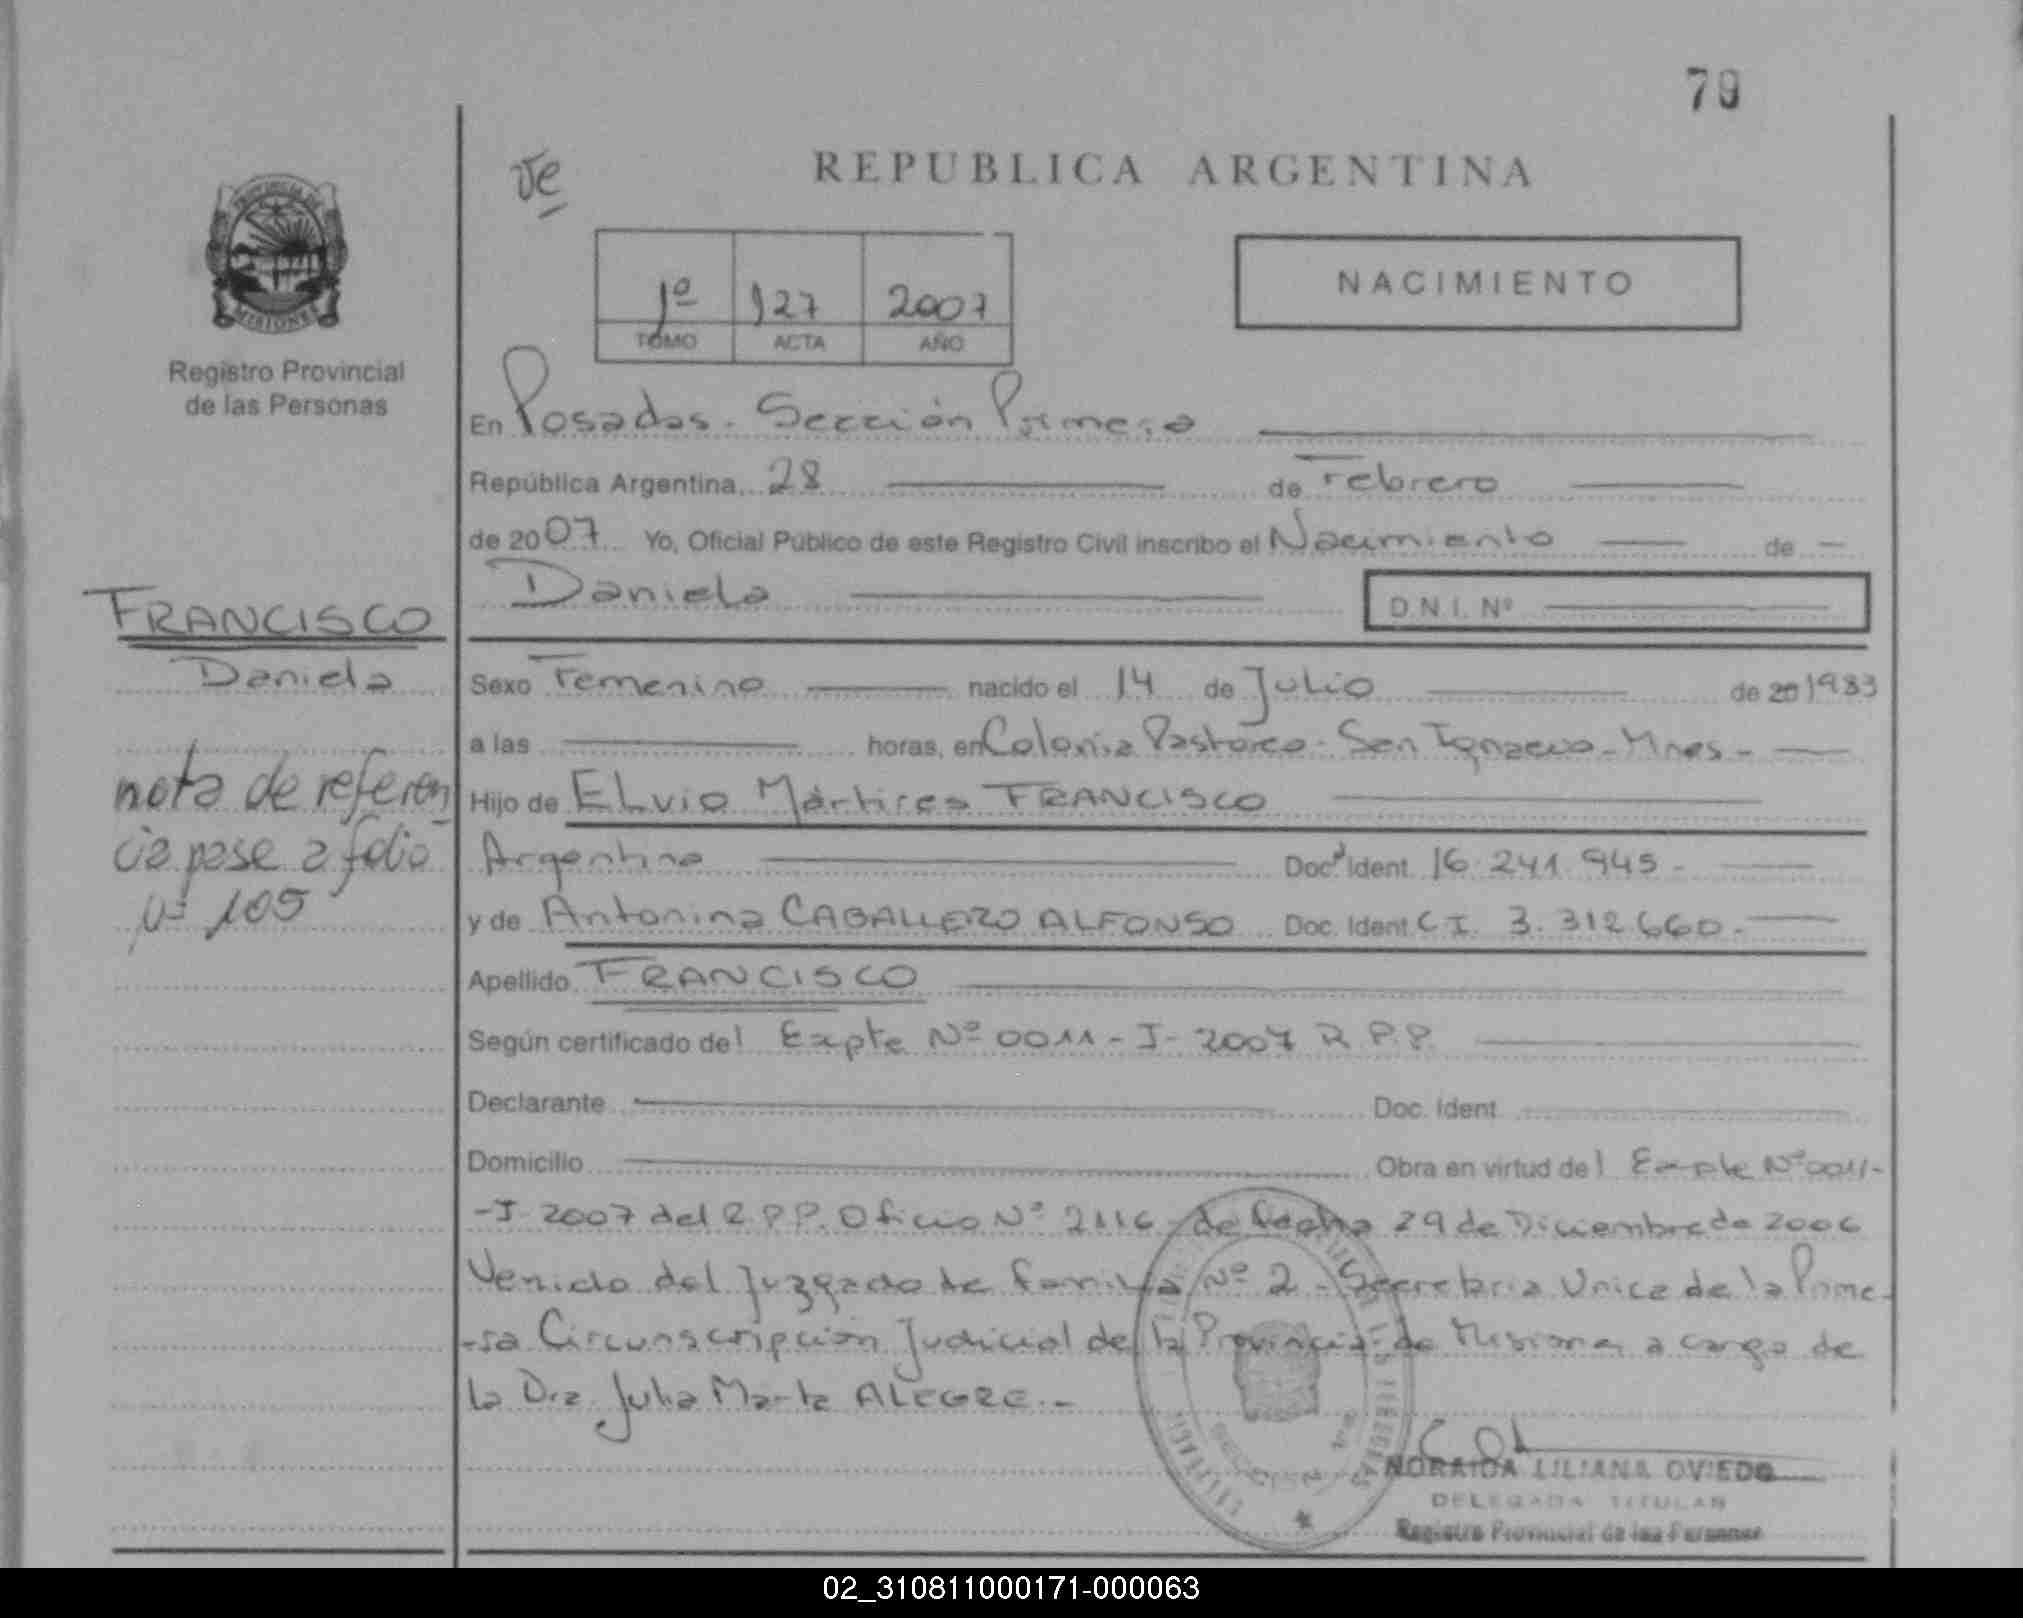 79
REPUBLICA ARGENTINA
Ve
PROVINCIA DE
MISIONES
1º 127 2007
TOMO ACTA AÑO
NACIMIENTO
Registro Provincial
de las Personas
En Posadas. Sección Primera
República Argentina, 28 de Febrero
de 2007 Yo, Oficial Público de este Registro Civil inscribo el Nacimiento de
Daniela D.N.I. Nº
FRANCISCO
Daniela
nota de referen
cia pase a folio
nº 105
Sexo Femenino nacido el 14 de Julio de 20 1983
a las horas, en Colonia Pastoreo - San Ignacio - Mnes -
Hijo de ELvio Mártires FRANCISCO
Argentino Doc. Ident. 16.241.945 -
y de Antonina CABALLERO ALFONSO Doc. Ident. C I. 3.312.660.-
Apellido FRANCISCO
Según certificado del Expte Nº 0011 - I - 2007 R.P.P.
Declarante Doc. Ident.
Domicilio Obra en virtud del Expte Nº 0011-
- I 2007 del R.P.P. Oficio Nº 2116 - de fecha 29 de Diciembre de 2006
Venido del Juzgado de familia Nº 2 - Secretaria Unica de la Prime-
-ra Circunscripción Judicial de la Provincia de Misiones a cargo de
la Dra. Julia Marta ALEGRE.-
NORAIDA LILIANA OVIEDO
DELEGADA TITULAR
Registro Provincial de las Personas
02_310811000171-000063